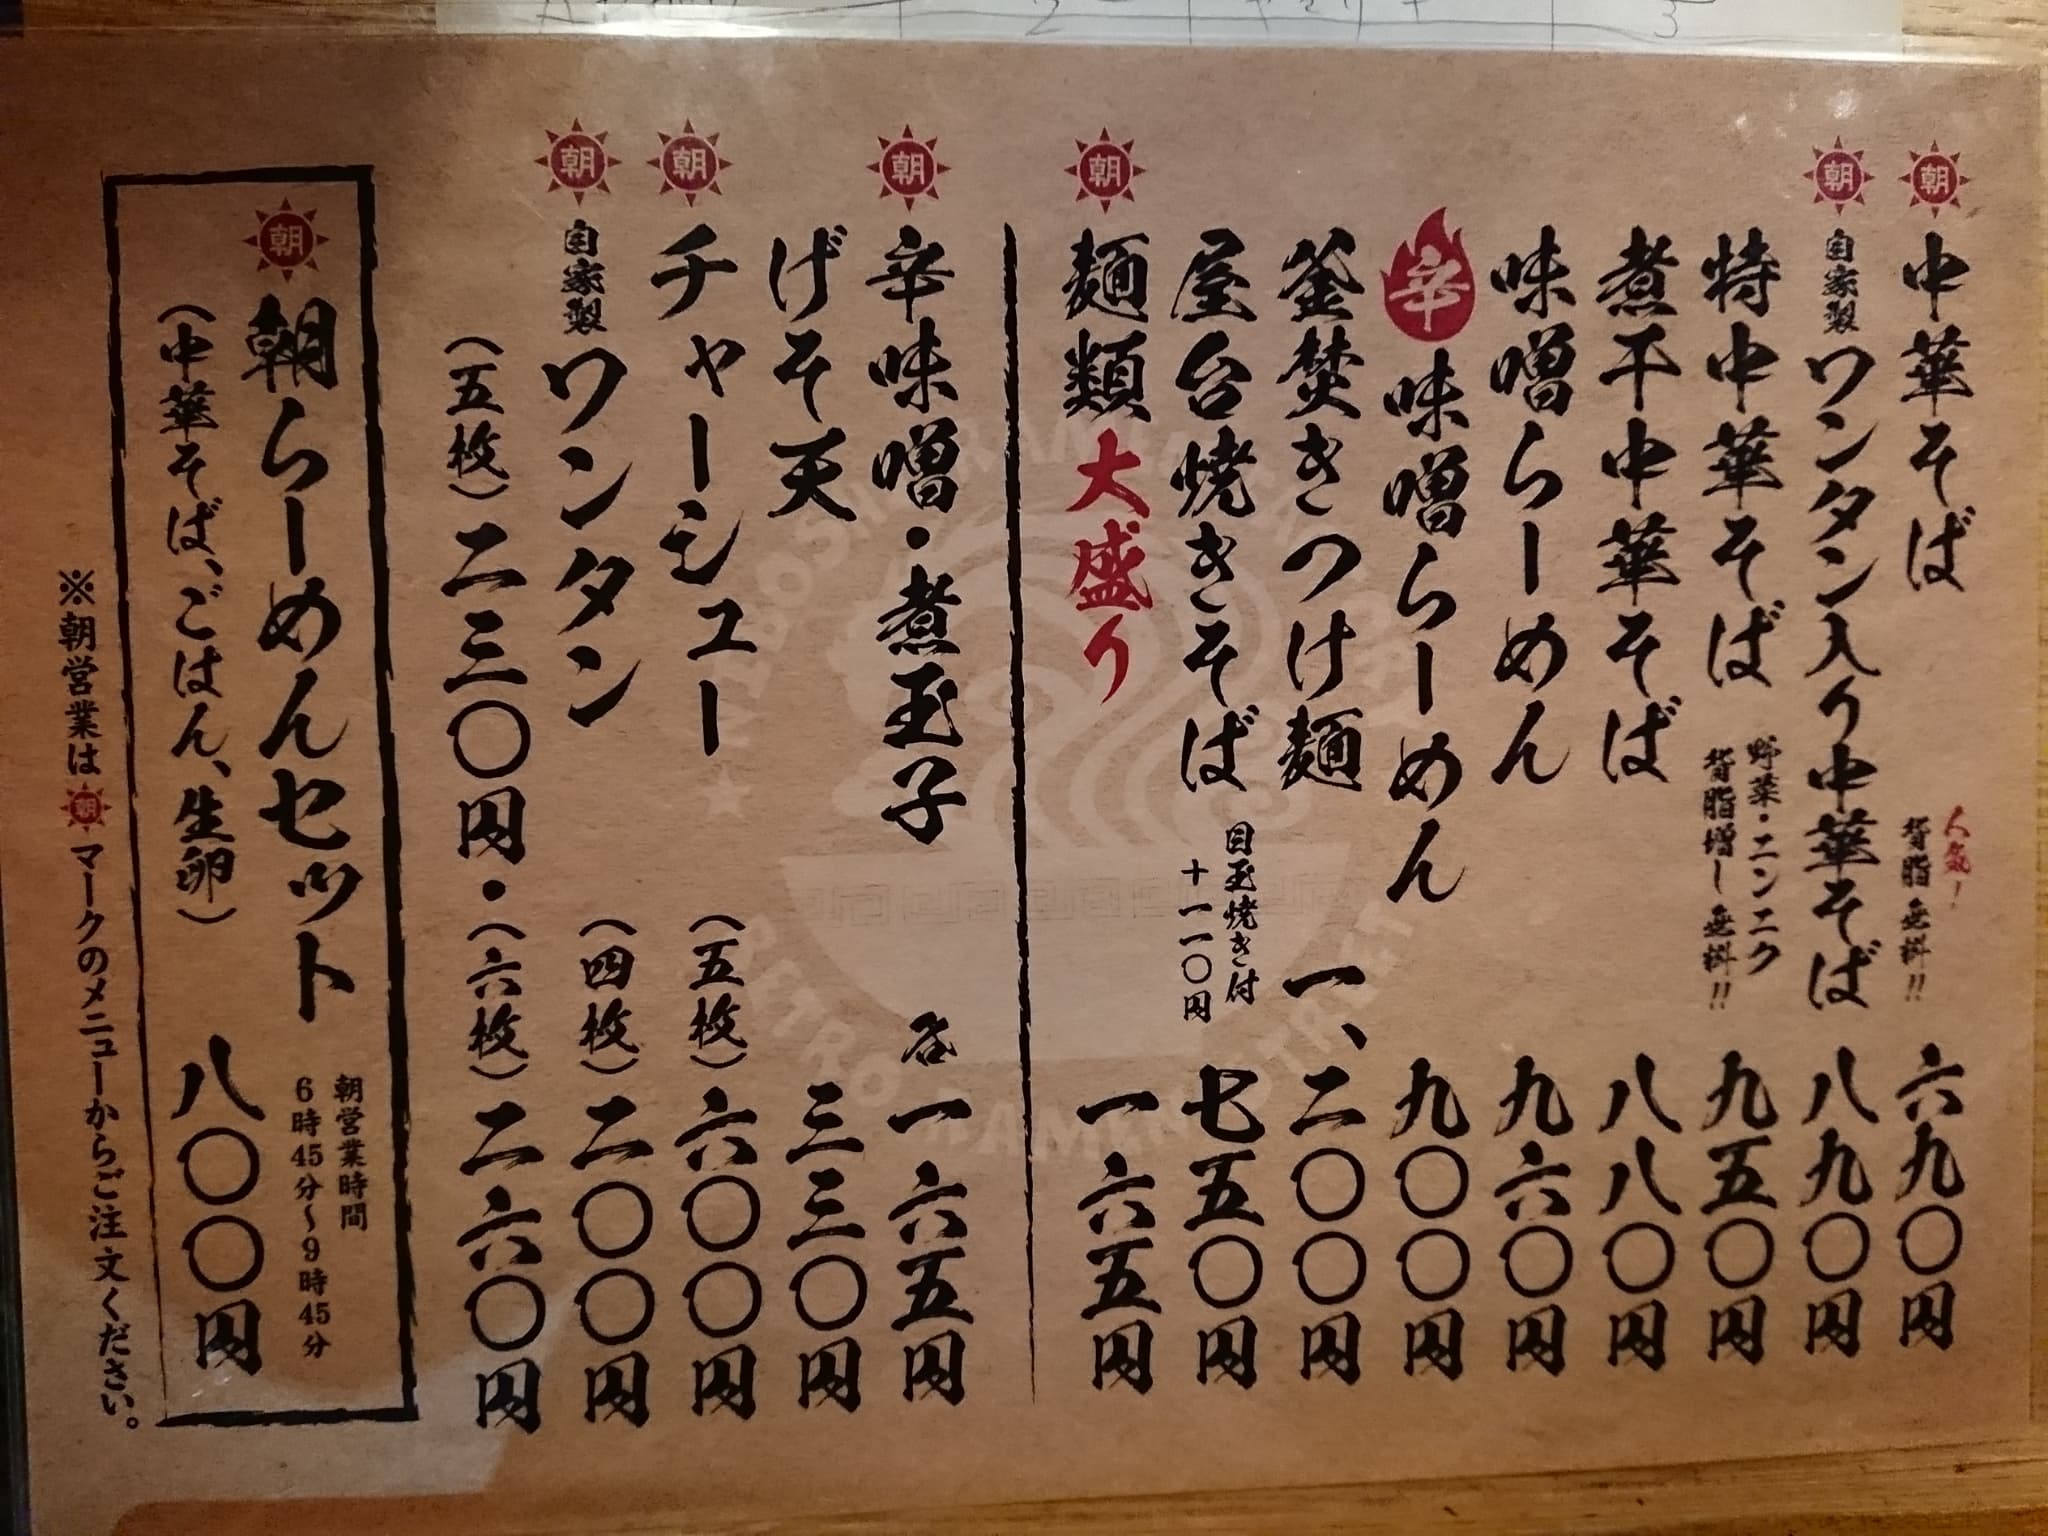 朝 中華そば 人気! 背脂 無料!! 六九〇円
朝 自家製 ワンタン入り中華そば 八九〇円
特中華そば 野菜・ニンニク 背脂増し 無料!! 九五〇円
煮干中華そば 八八〇円
味噌らーめん 九六〇円
辛 味噌らーめん 九〇〇円
釜焚きつけ麺 一、二〇〇円
屋台焼きそば 目玉焼き付 十一一〇円 七五〇円
朝 麺類大盛り 一六五円
朝 辛味噌・煮玉子 各 一六五円
げそ天 三三〇円
朝 チャーシュー (五枚) 六〇〇円
朝 自家製 ワンタン (四枚) 二〇〇円
(五枚) 二三〇円・(六枚) 二六〇円
朝 朝らーめんセット
朝営業時間
6時45分〜9時45分
(中華そば、ごはん、生卵) 八〇〇円
※朝営業は朝マークのメニューからご注文ください。